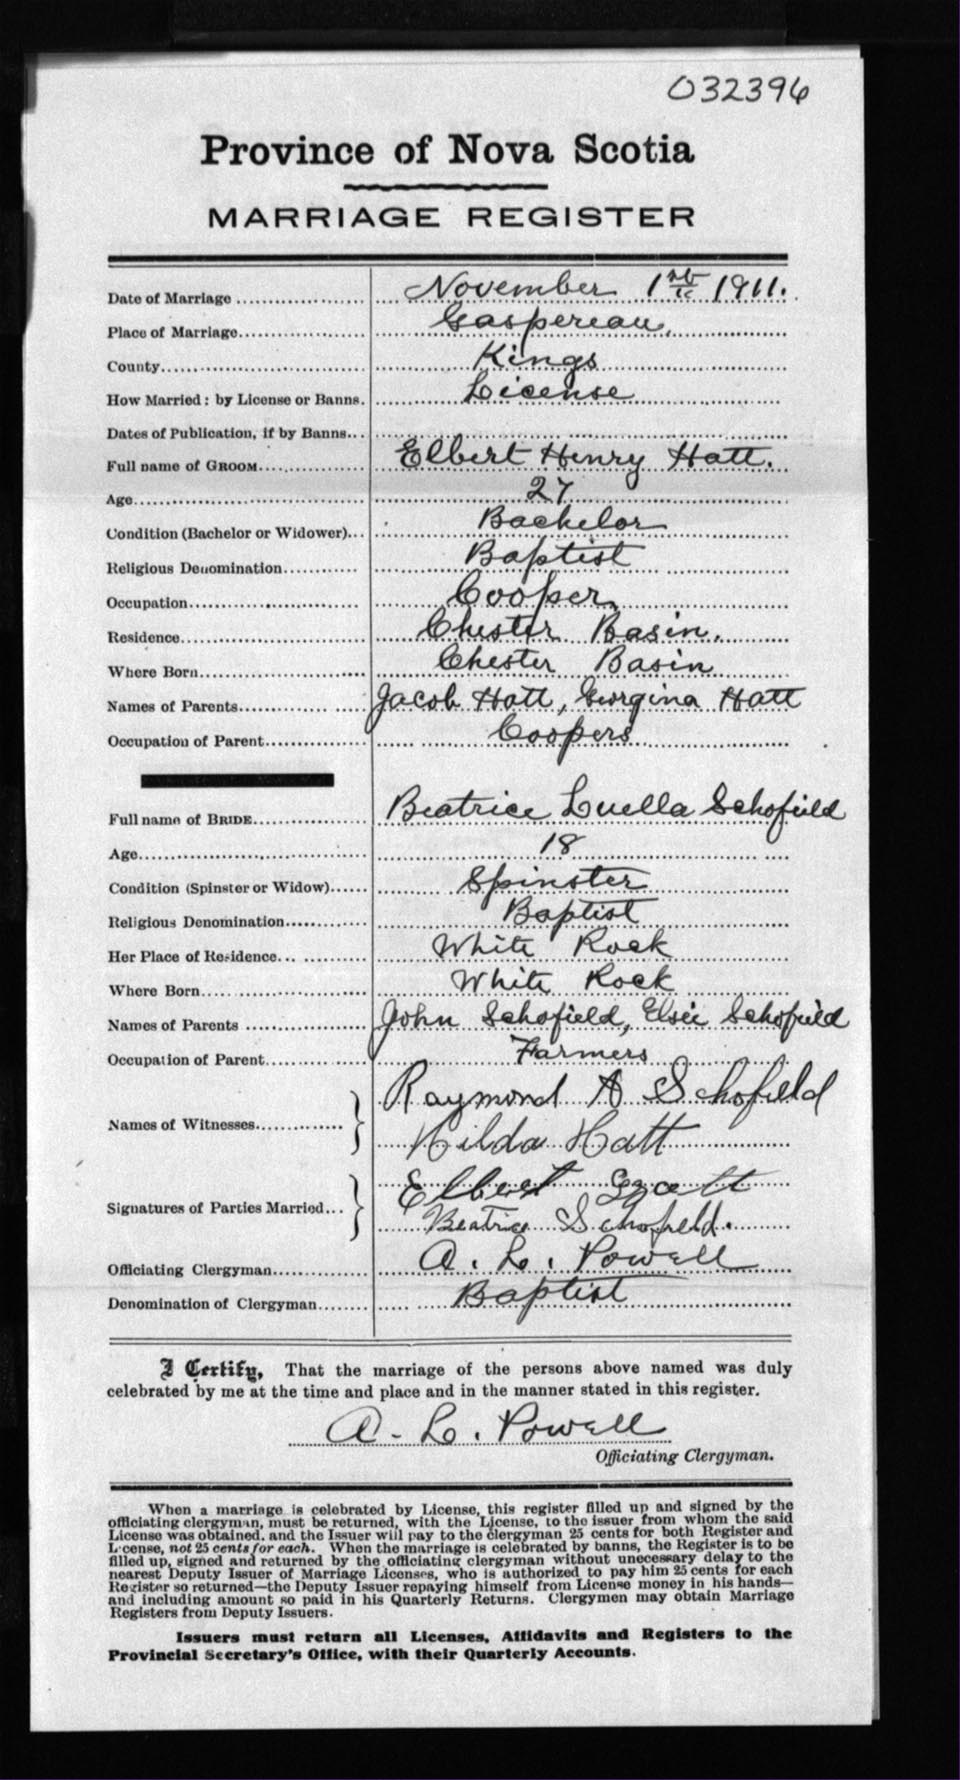 032396
Province of Nova Scotia
MARRIAGE REGISTER
Date of Marriage November 1st 1911.
Place of Marriage Gaspereau,
County Kings
How Married: by License or Banns. License
Dates of Publication, if by Banns
Full name of GROOM Elbert Henry Hatt.
Age 27
Condition (Bachelor or Widower) Bachelor
Religious Denomination Baptist
Occupation Cooper,
Residence Chester Basin.
Where Born Chester Basin
Names of Parents Jacob Hatt, Georgina Hatt
Occupation of Parent Coopers
Full name of BRIDE Beatrice Luella Schofield
Age 18
Condition (Spinster or Widow) Spinster
Religious Denomination Baptist
Her Place of Residence White Rock
Where Born White Rock
Names of Parents John Schofield, Elsie Schofield
Occupation of Parent Farmers
Names of Witnesses } Raymond A Schofield
Hilda Hatt
Signatures of Parties Married } Elbert Hatt
Beatrice Schofield.
Officiating Clergyman A. L. Powell
Denomination of Clergyman Baptist
I Certify, That the marriage of the persons above named was duly
celebrated by me at the time and place and in the manner stated in this register.
A. L. Powell
Officiating Clergyman.
When a marriage is celebrated by License, this register filled up and signed by the
officiating clergyman, must be returned, with the License, to the issuer from whom the said
License was obtained, and the Issuer will pay to the clergyman 25 cents for both Register and
License, not 25 cents for each. When the marriage is celebrated by banns, the Register is to be
filled up, signed and returned by the officiating clergyman without unecessary delay to the
nearest Deputy Issuer of Marriage Licenses, who is authorized to pay him 25 cents for each
Register so returned—the Deputy Issuer repaying himself from License money in his hands—
and including amount so paid in his Quarterly Returns. Clergymen may obtain Marriage
Registers from Deputy Issuers.
Issuers must return all Licenses, Affidavits and Registers to the
Provincial Secretary's Office, with their Quarterly Accounts.